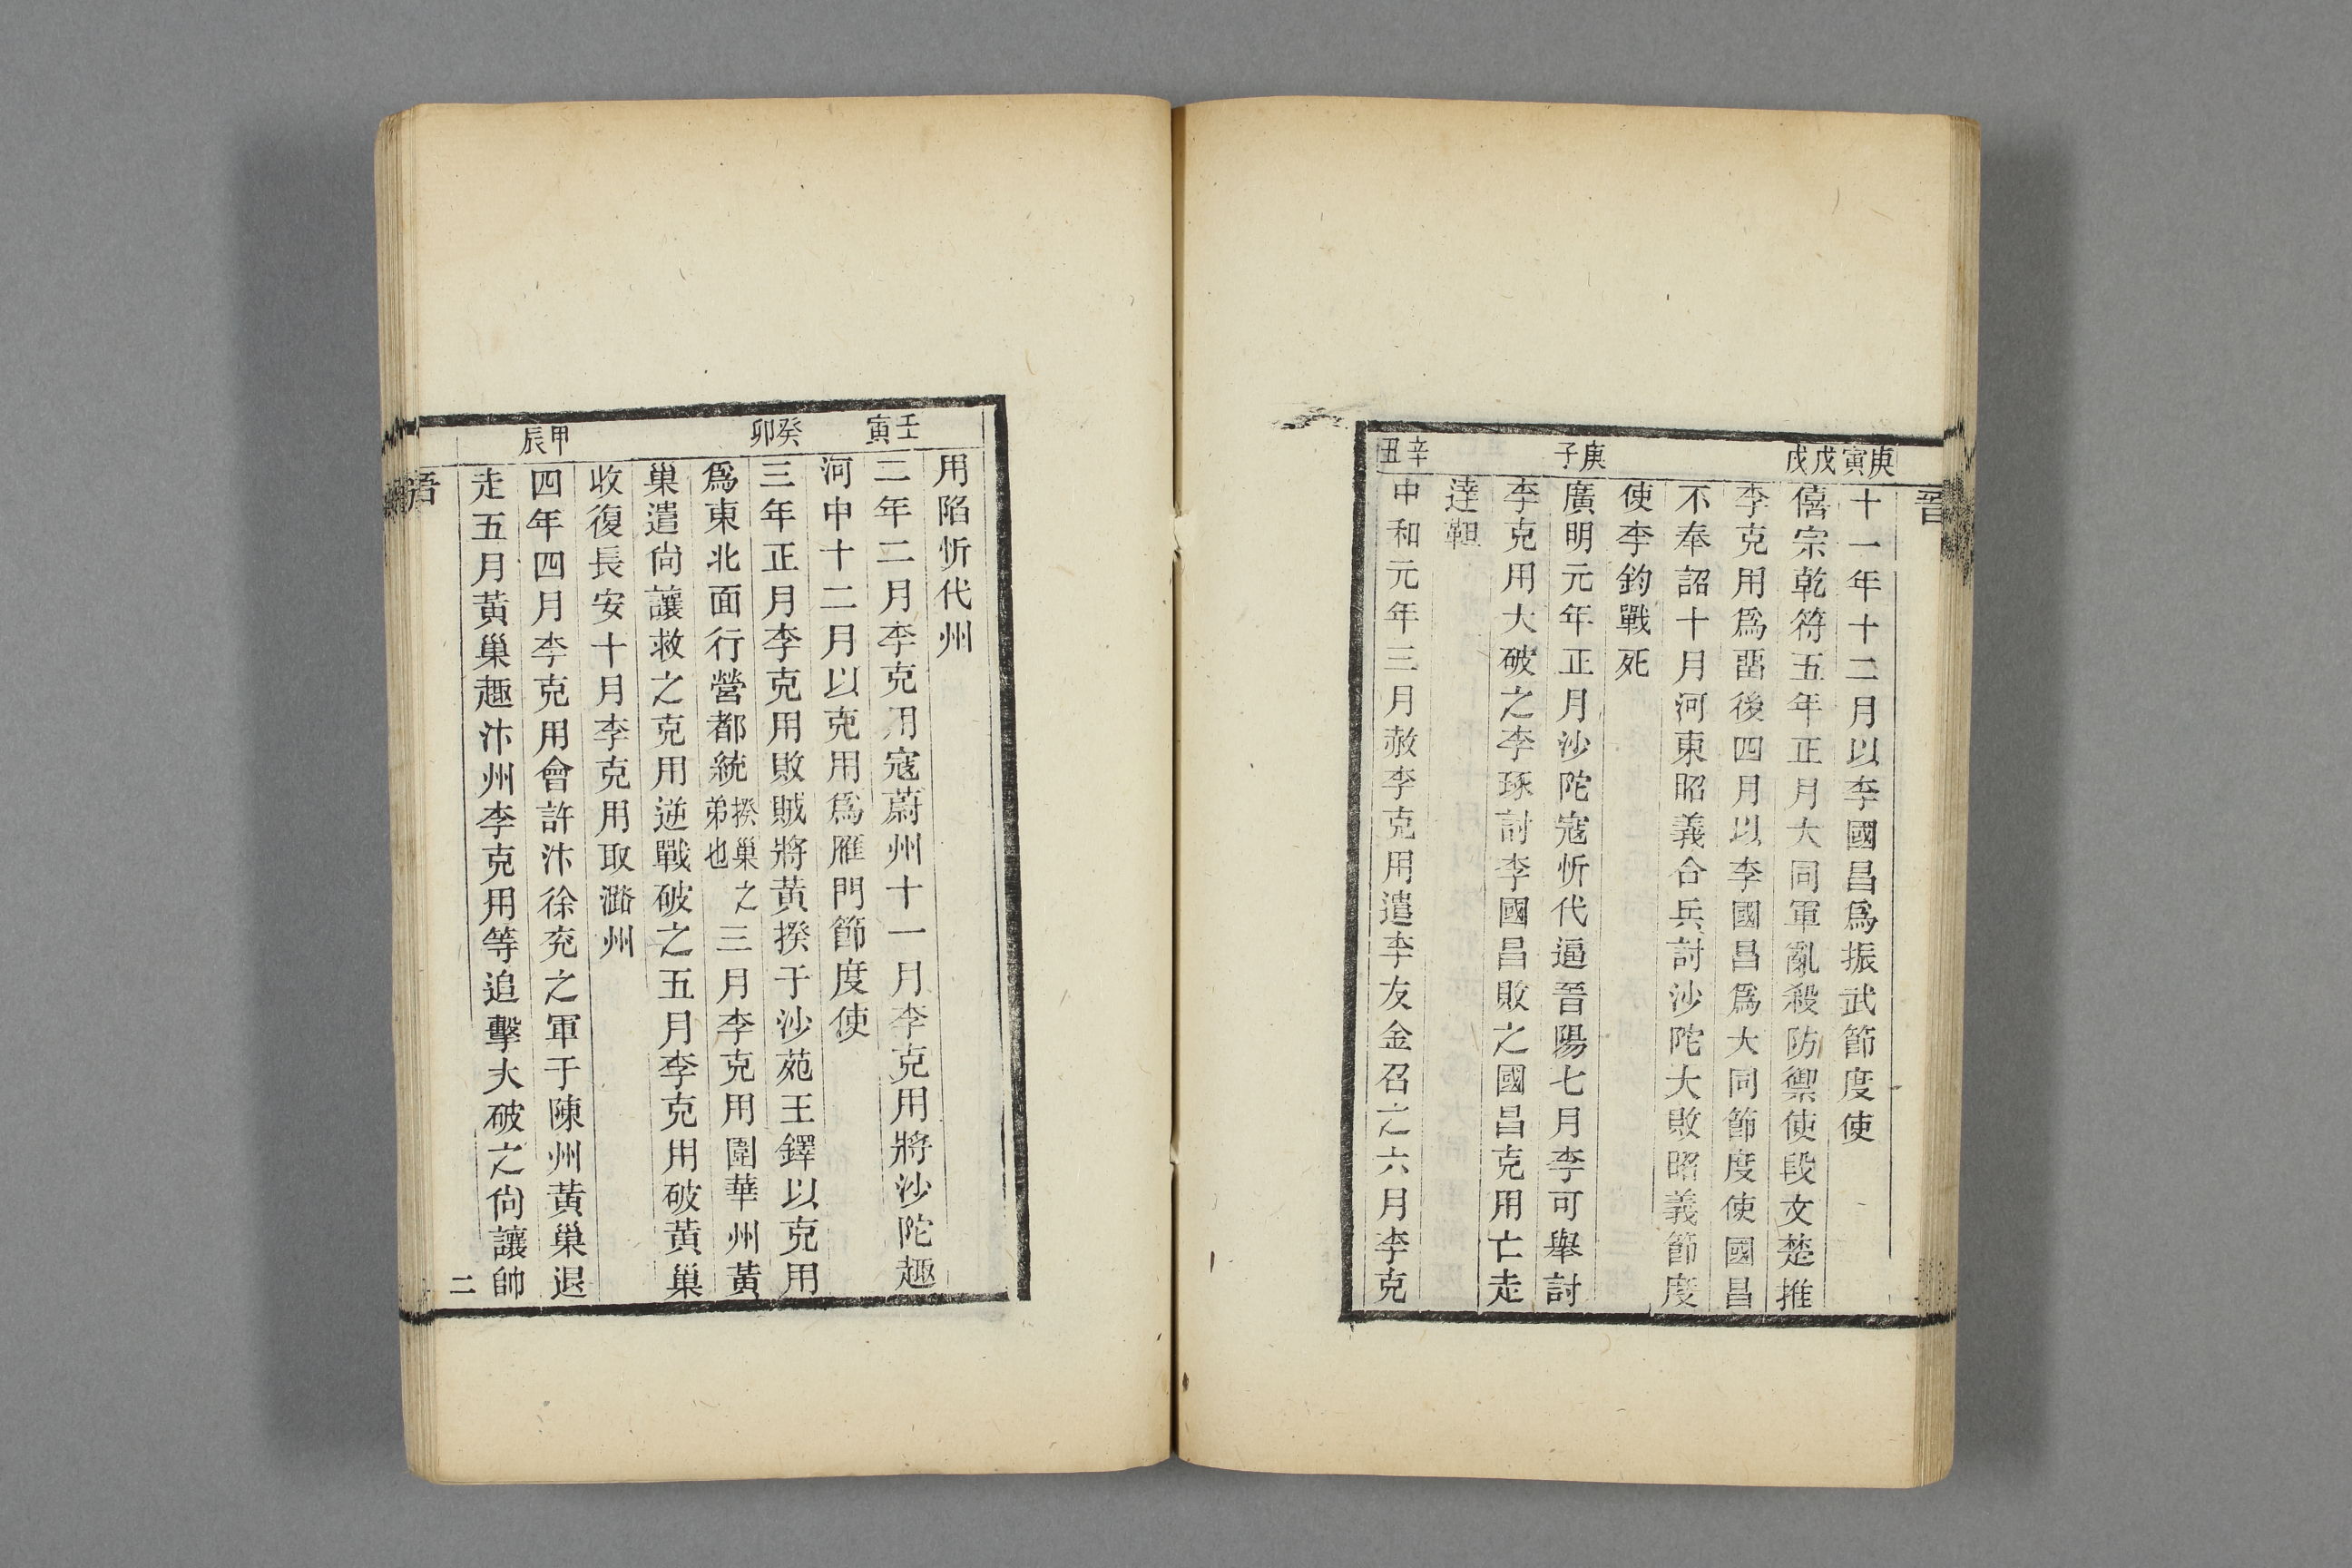 晉
庚寅
十一年十二月以李國昌爲振武節度使
戊戌
僖宗乾符五年正月大同軍亂殺防禦使段文楚推
李克用爲畱後四月以李國昌爲大同節度使國昌
不奉詔十月河東昭義合兵討沙陀大敗昭義節度
使李鈞戰死
庚子
廣明元年正月沙陀寇忻代逼晉陽七月李可舉討
李克用大破之李琢討李國昌敗之國昌克用亡走
達靼
辛丑
中和元年三月赦李克用遣李友金召之六月李克
用陷忻代州
壬寅
二年二月李克用寇蔚州十一月李克用將沙陀趣
河中十二月以克用爲雁門節度使
癸卯
三年正月李克用敗賊將黃揆于沙苑王鐸以克用
爲東北面行營都統揆巢之弟也三月李克用圍華州黃
巢遣尙讓救之克用逆戰破之五月李克用破黃巢
收復長安十月李克用取潞州
甲辰
四年四月李克用會許汴徐兖之軍于陳州黃巢退
走五月黃巢趣汴州李克用等追擊大破之尙讓帥
二